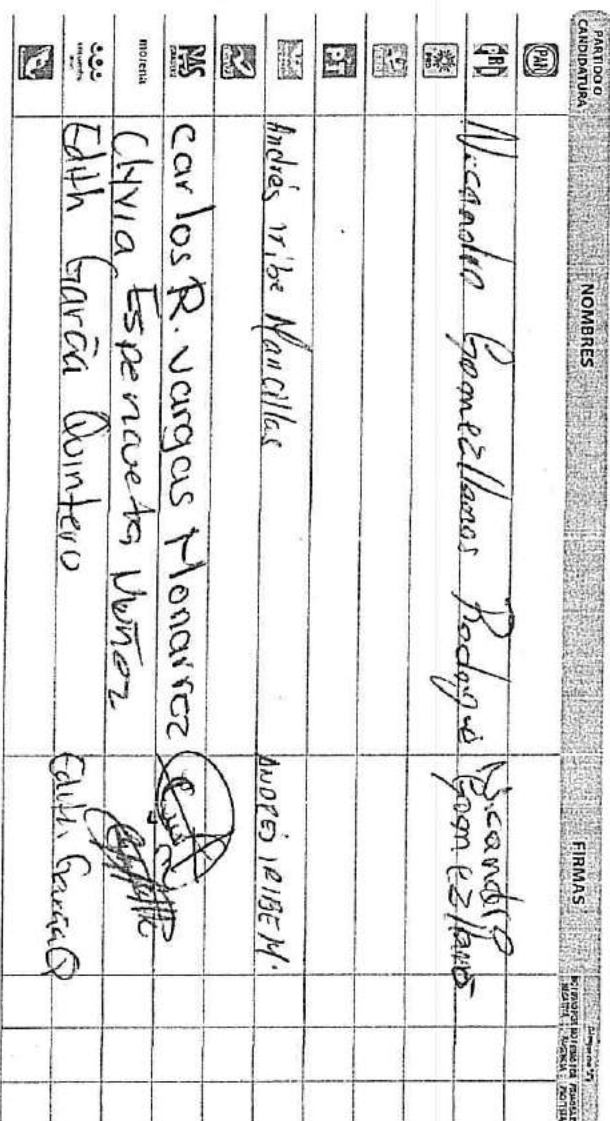 PARTIDO O CANDIDATURA NOMBRES FIRMAS
PAN
PRI Nicandro Gomezllanos Rodrigue Nicandro Gomezllano
PRD
PT
Andrés iribe Mancillas ANDRES IRIBE M.
PAS Carlos R. Vargas Monarrez
morena Clivia Espenaveta Muñoz
encuentro Edith García Quintero Edith García Q